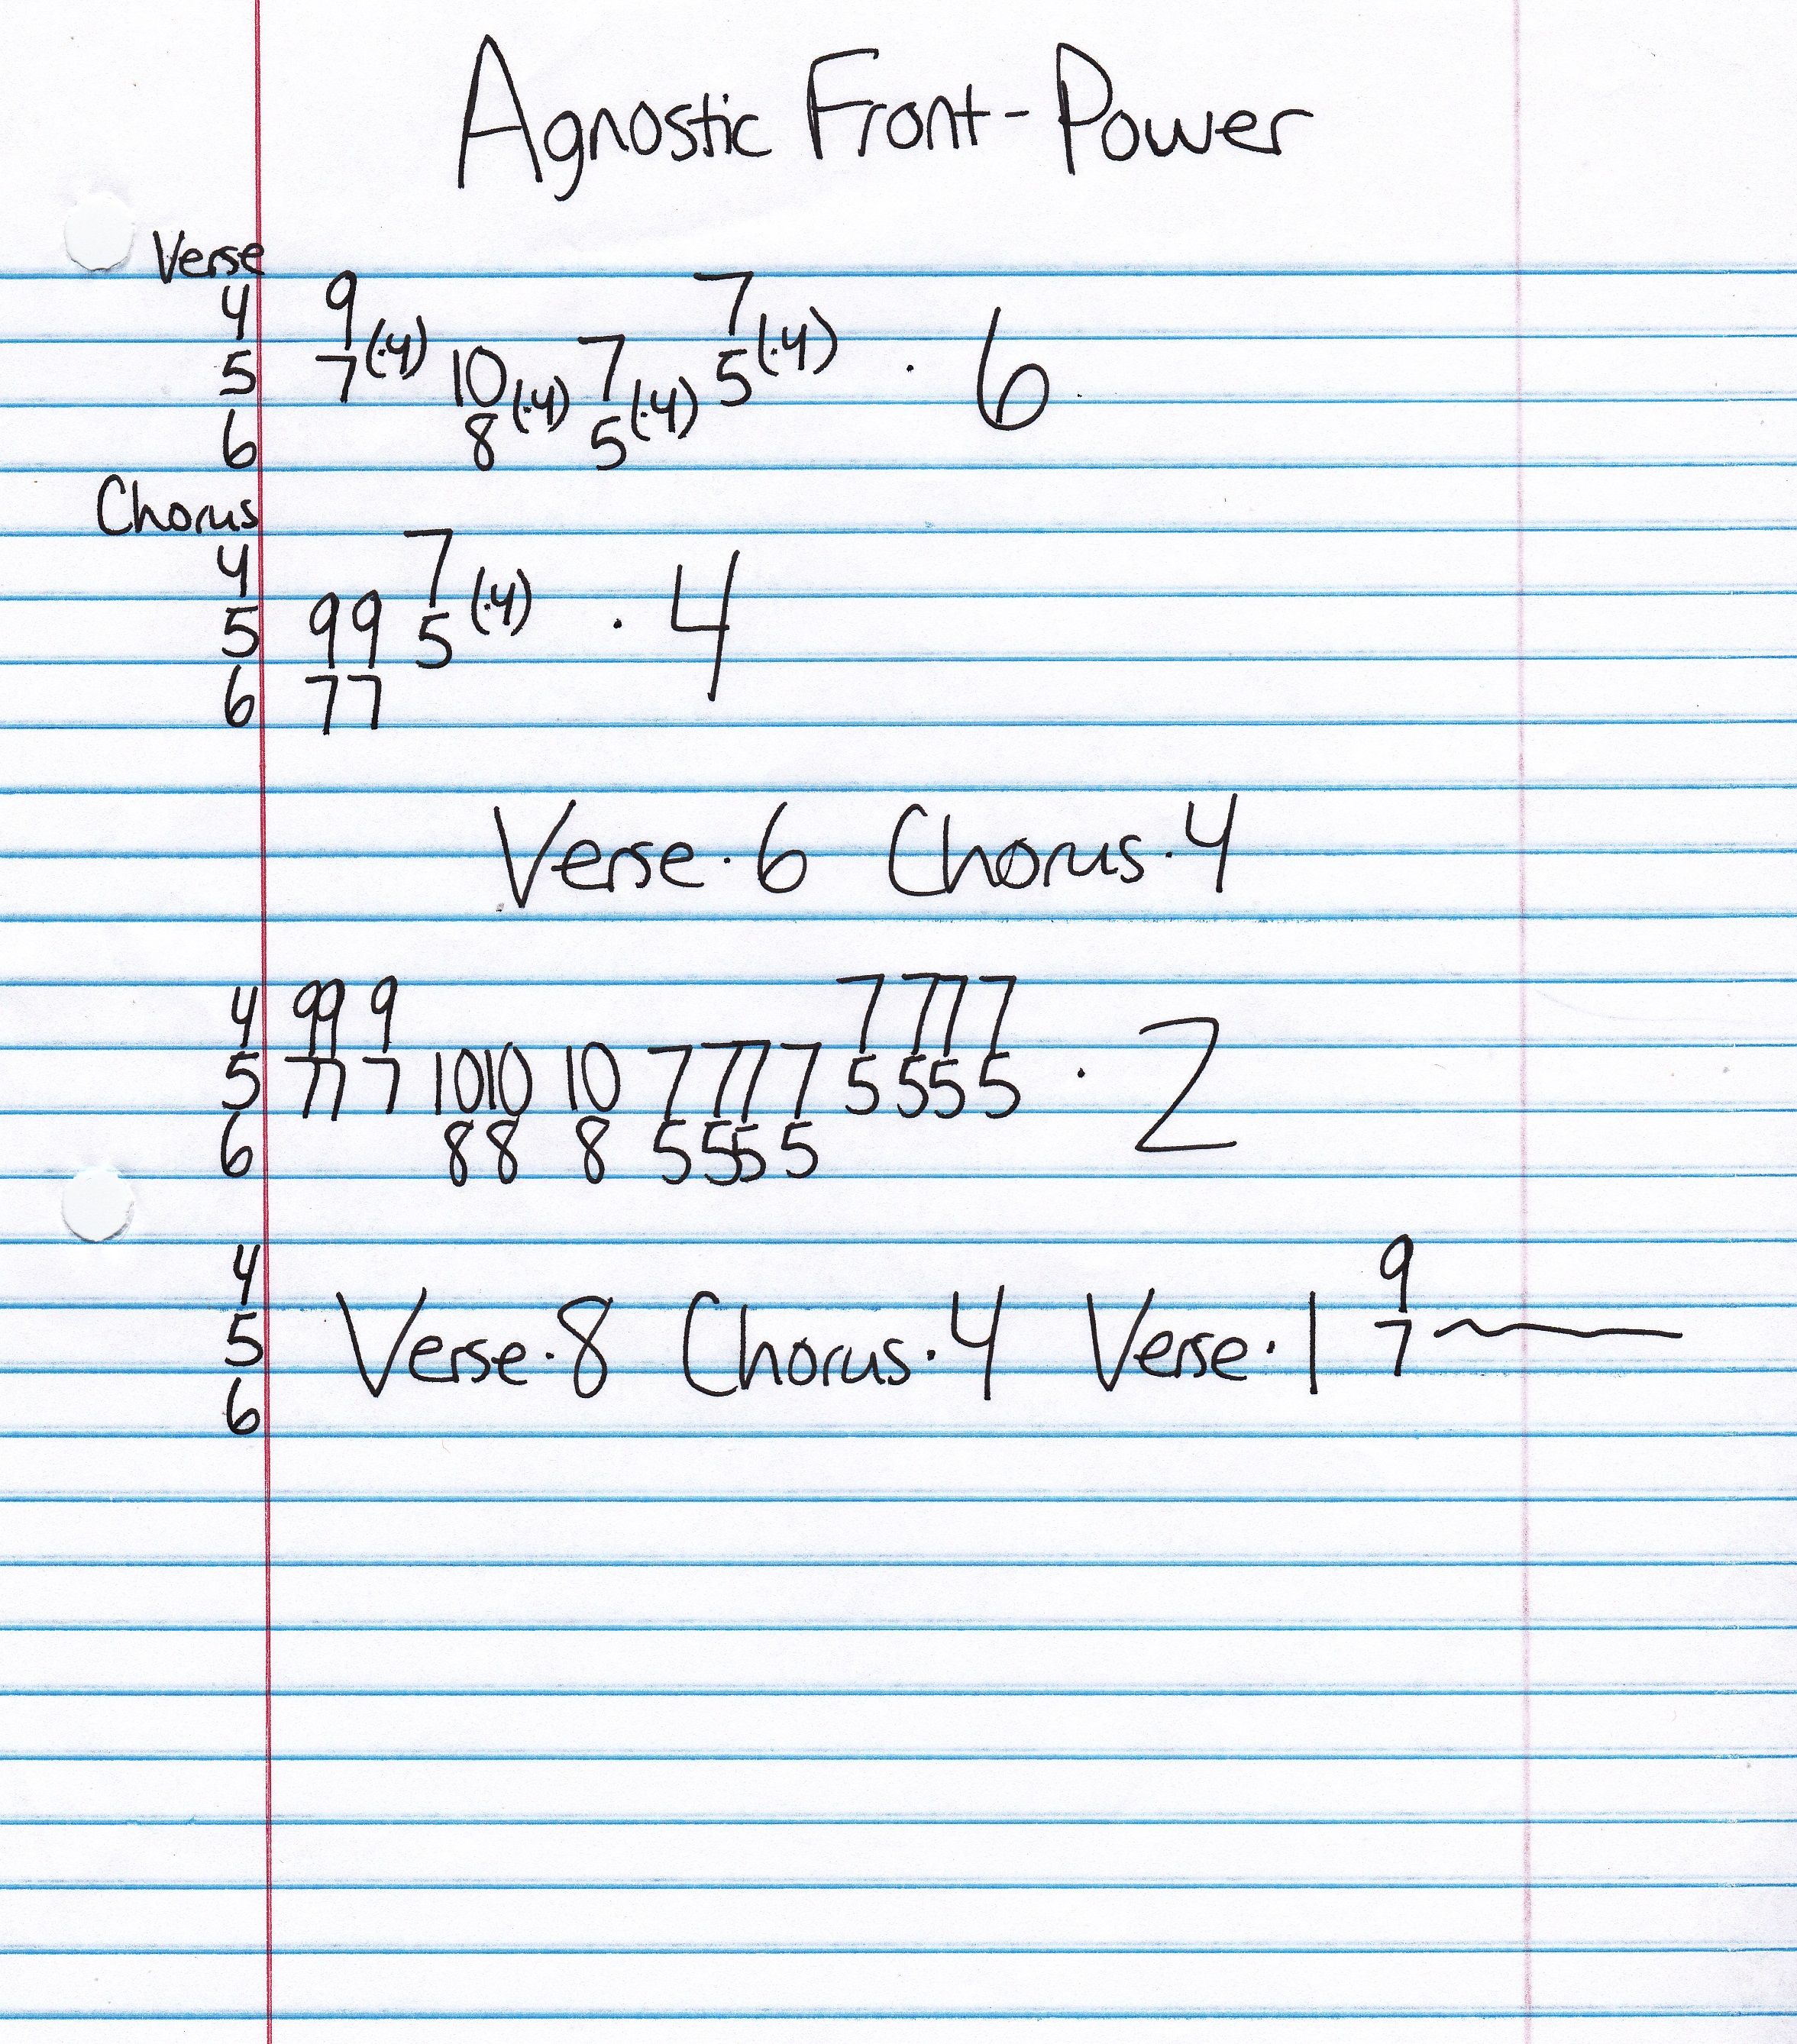 Agnostic Front - Power
Verse
4 9 7
5 7(·4) 10(·4) 7(·4) 5(·4) · 6
6 8 5
Chorus
4 7
5 99 5(·4) · 4
6 77
Verse·6 Chorus·4
4 99 9 7 77 7
5 77 7 1010 10 7 77 7 5 55 5 · 2
6 88 8 5 55 5
4 9
5 Verse·8 Chorus·4 Verse·1 7
6